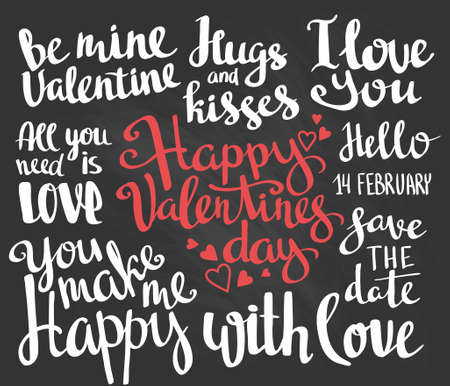 be mine
Valentine
Hugs
and
kisses
I love
You
All you
need is
LOVE
Happy
Valentines
day
Hello
14 FEBRUARY
save
THE
date
You
make
me
Happy
with love